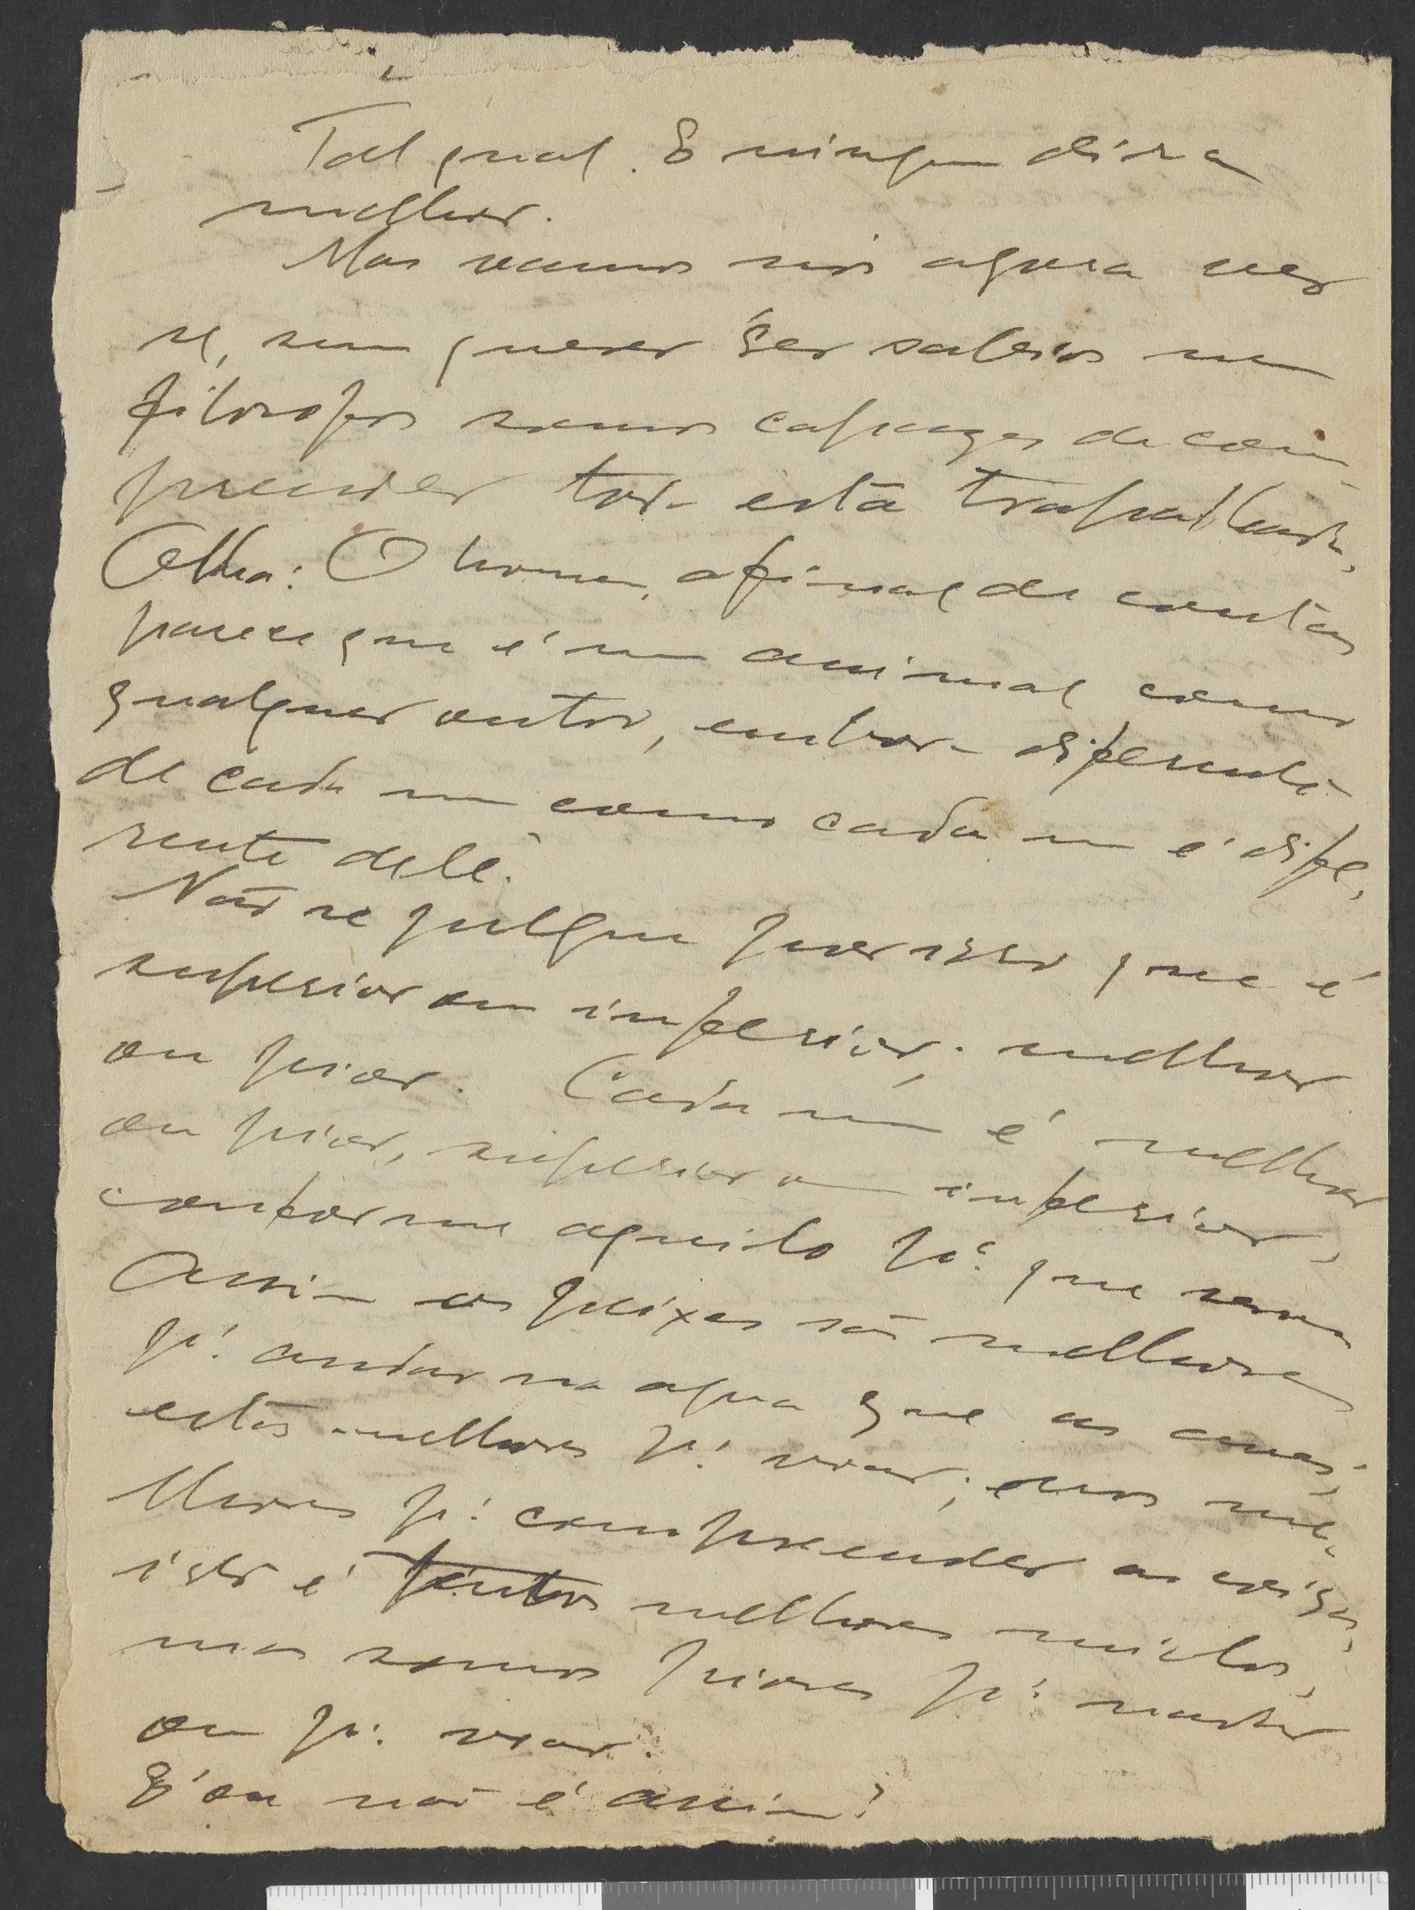 Tal qual. E ninguem diria
melhor.
Mas vamos nós agora ver
se, sem querer ser sabios nem
filosofos somos capazes de com
preender toda esta trapalhada.
Olha: O homem, afinal de contas
parece que é um animal como
qualquer outro, embora diferente
de cada um como cada um é dife,
rente dele.
Não se julgue por isso que é
superior ou inferior; melhor
ou pior. Cada um é melhor
ou pior, superior ou inferior,
conforme aquilo pª que serve
Assim os peixes são melhores
pª andar na agua que as aves;
estas melhores pª voar; nós me-
lhores pª compreender as coisas,
isto é temos melhores miolos,
mas somos piores pª nadar
ou pª voar.
E' ou não é assim?